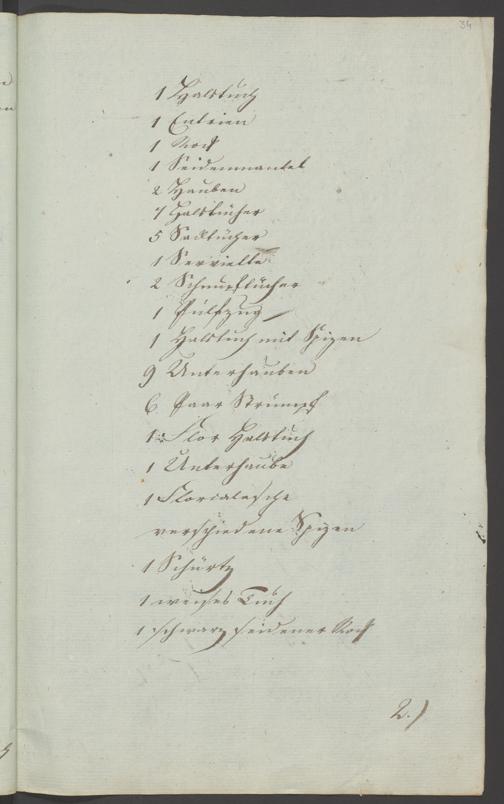 34
1 Halstuch
1 Entrien
1 Rock
1 Seidenmantel
2 Hauben
7 Halstücher
5 Sacktücher
1 Serviette
2 Schnupftücher
1
1 Halstuch mit Spizen
9 Unterhauben
6 Paar Strümpf
1 Flor Halstuch
1 Unterhaube
1
verschiedene Spizen
1 Schürtz
1 weises Tuch
1 schwarz seidener Rock
2.)